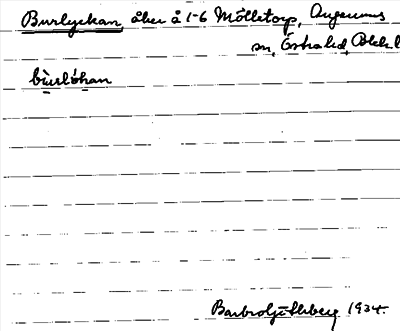 Burlyckan, åker å 1-6 Mölletorp, Augerums
sn, Östra hd, Blek. l
bu̠rlö̠kan
Barbro Ljüthberg 1934.